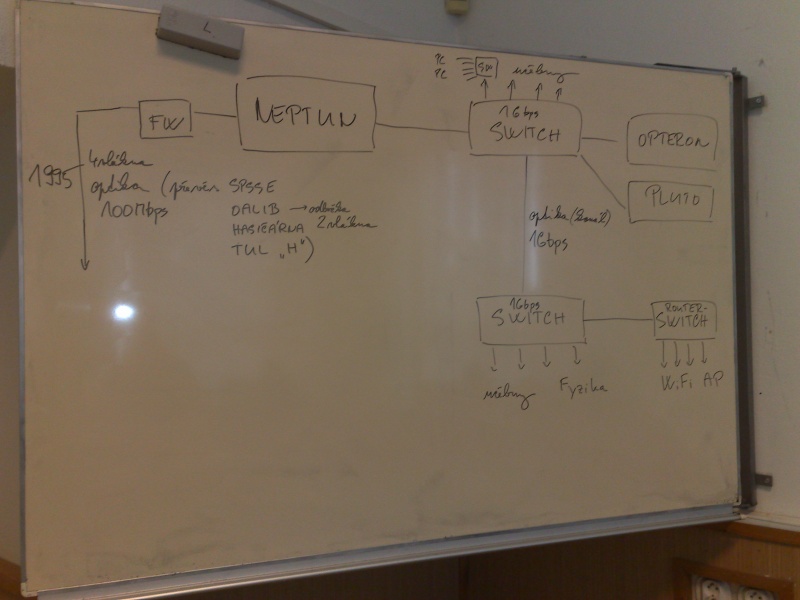 L.
FW
NEPTUN
PC
PC
učebny
1Gbps
SWITCH
OPTERON
PLUTO
1995
4 vlákna
optika (SPSSE
100Mbps
DALIB → odbočka
HASIČÁRNA 2 vlákna
TUL „H")
optika
1Gbps
1Gbps
SWITCH
ROUTER-
SWITCH
učebny
Fyzika
WiFi AP